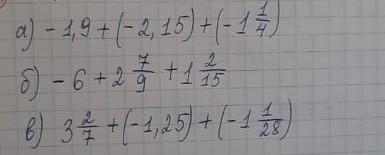 а) - 1,9 + (-2,15) + (-1 1/4)
б) - 6 + 2 7/9 + 1 2/15
в) 3 2/7 + (-1,25) + (-1 1/28)